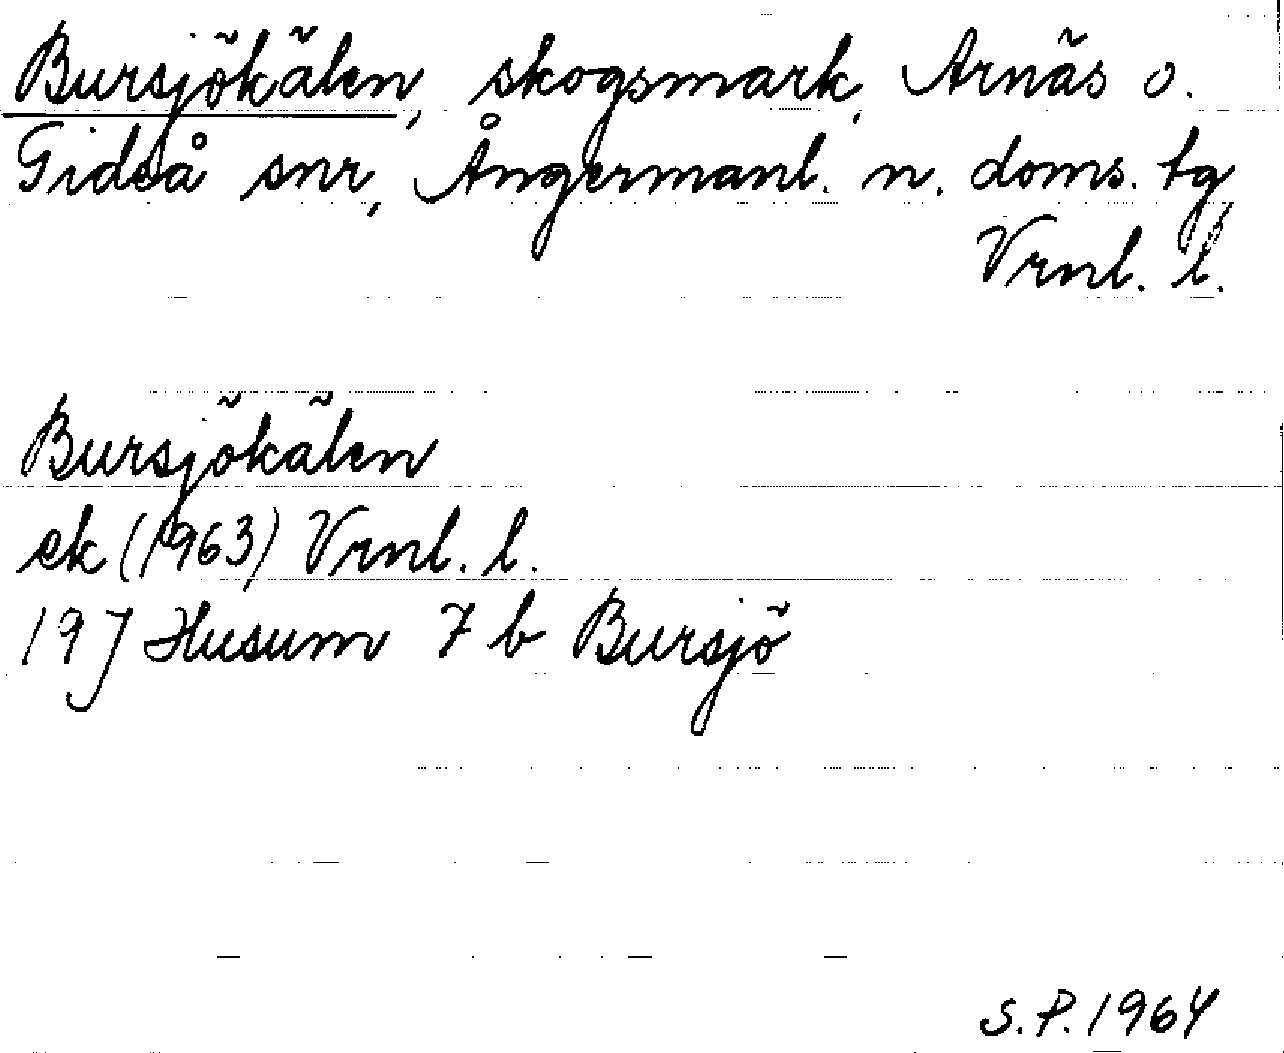 Bursjökälen, skogsmark, Arnäs o.
Gideå snr, Ångermanl. n. doms. tg,
Vrnl. l.
Bursjökälen
ek (1963) Vrnl. l.
19J Husum 7 b Bursjö
S.P. 1964